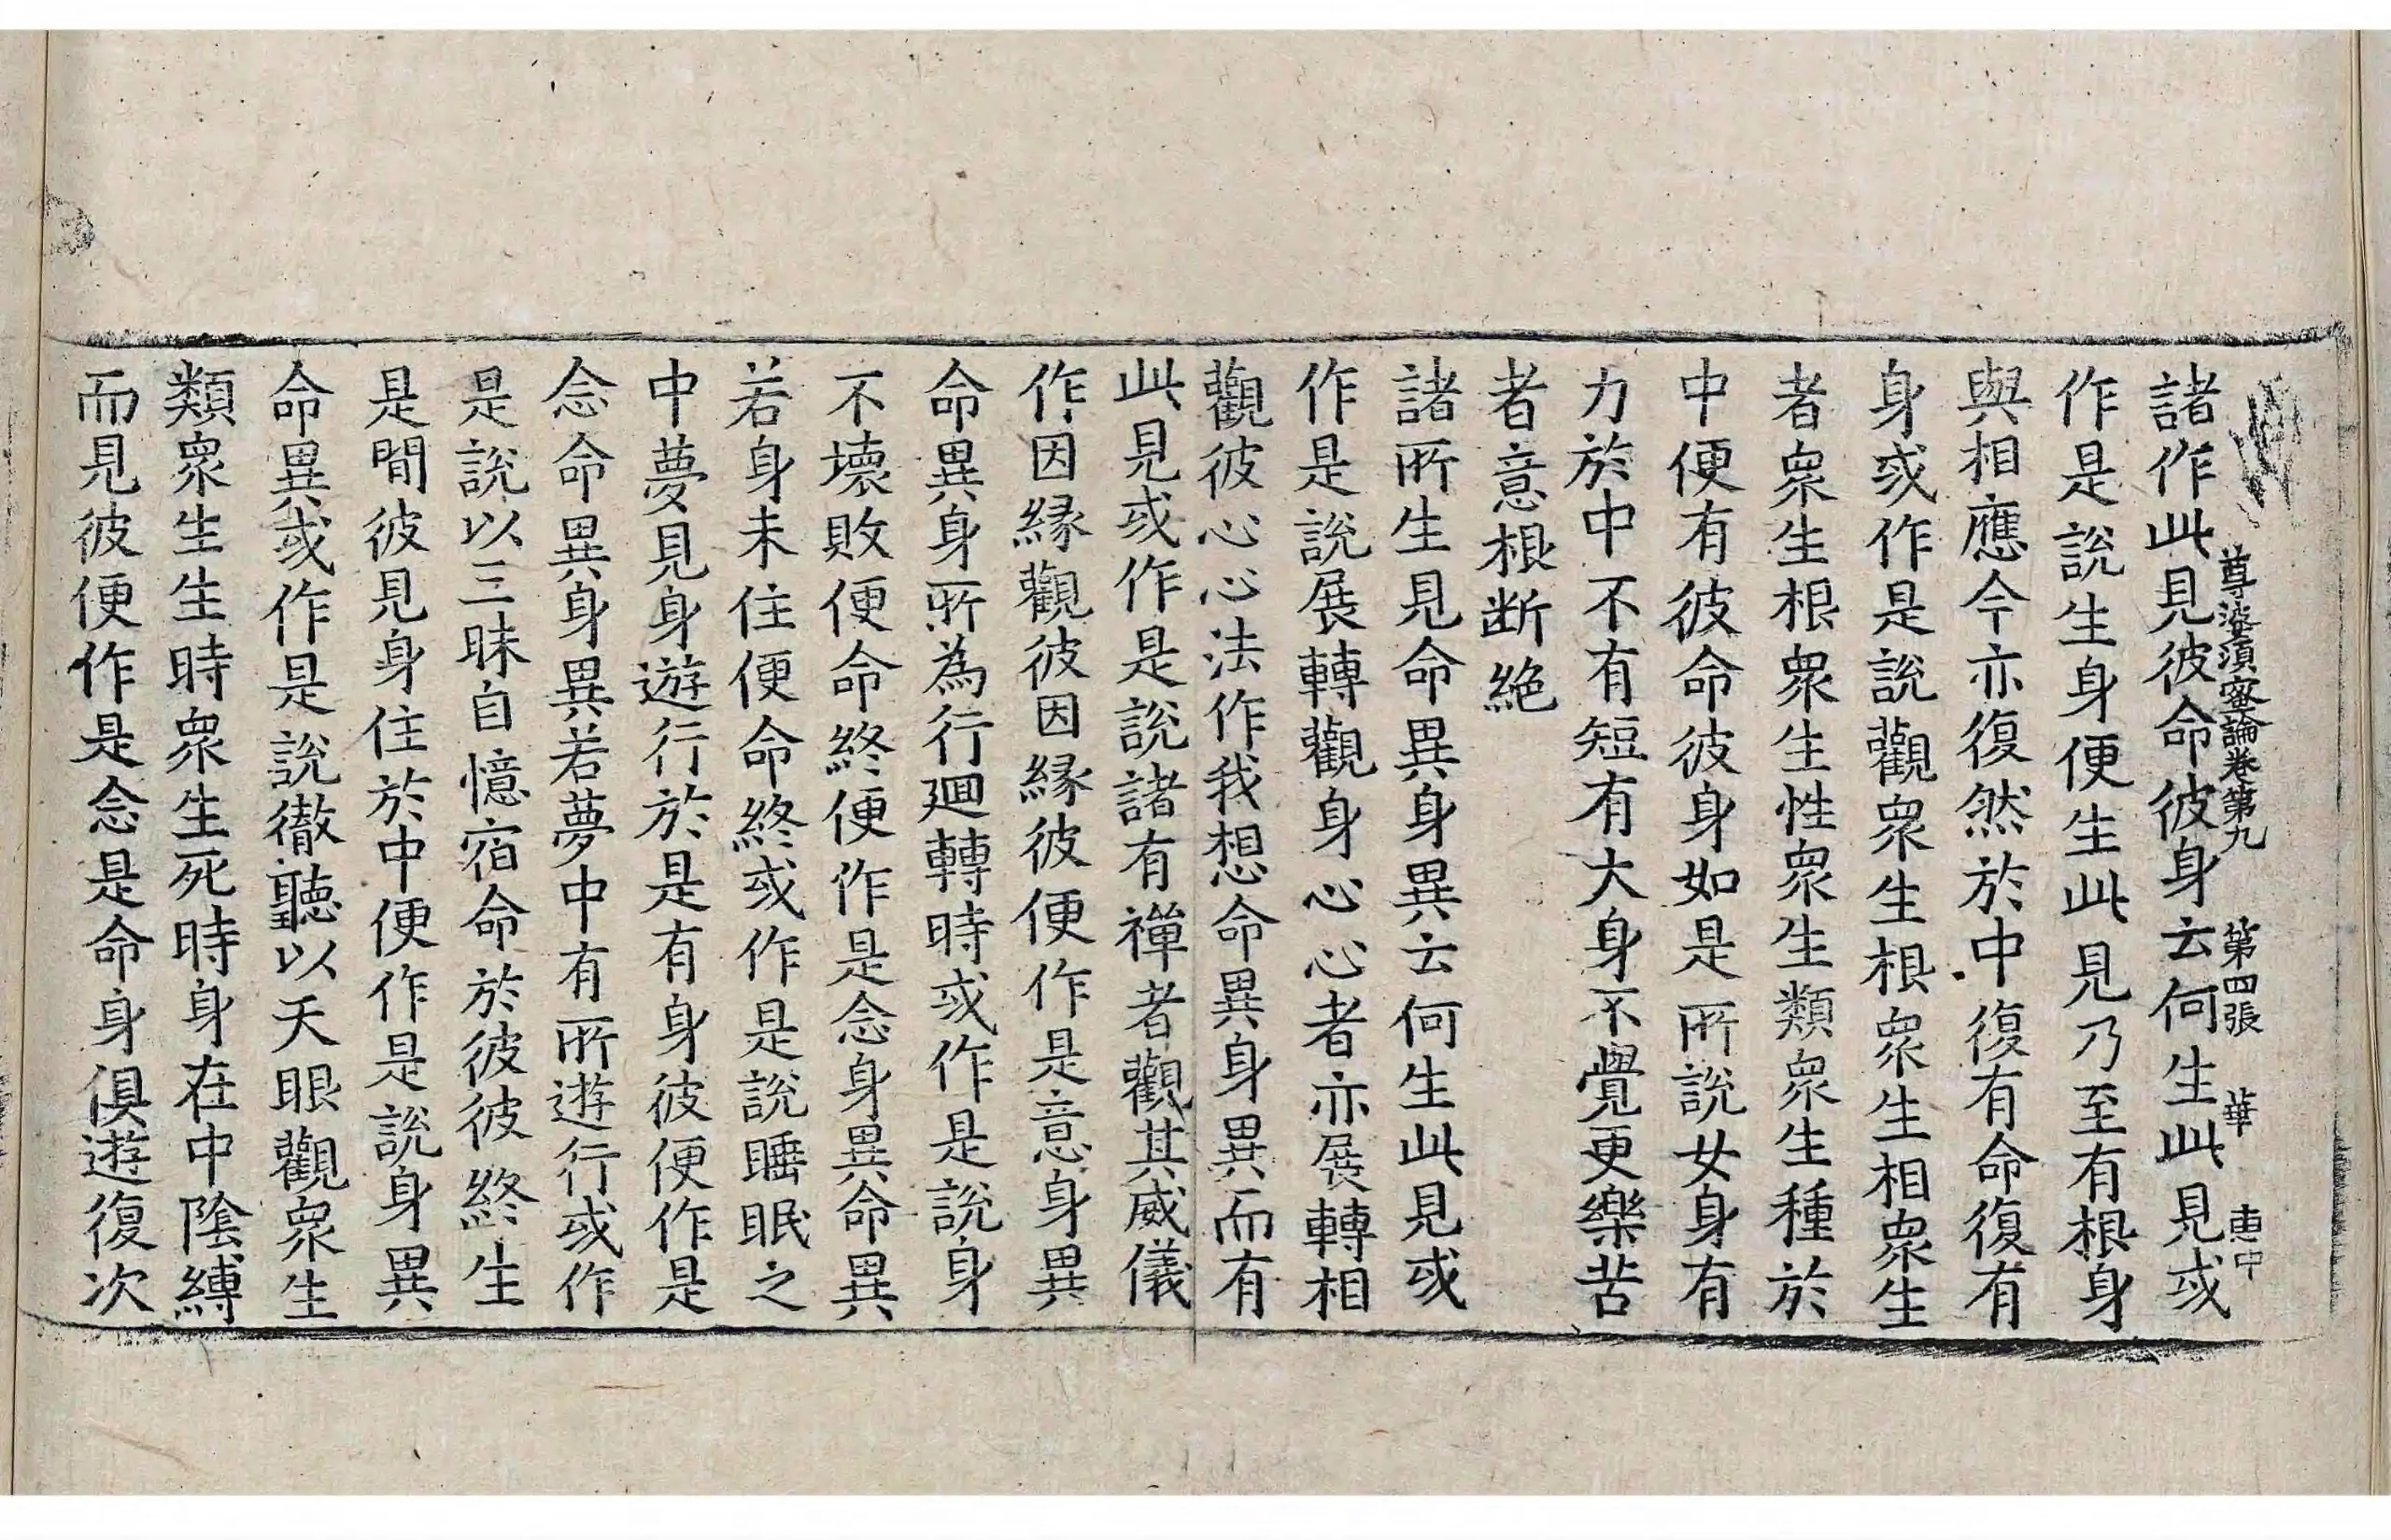 尊婆須蜜論卷第九 第四張 華 惠中
諸作此見彼命彼身云何生此見或
作是說生身便生此見乃至有根身
與相應今亦復然於中復有命復有
身或作是說觀衆生根衆生相衆生
者衆生根衆生性衆生類衆生種於
中便有彼命彼身如是所說女身有
力於中不有短有大身不覺更樂苦
者意根断絶
諸所生見命異身異云何生此見或
作是說展轉觀身心心者亦展轉相
觀彼心心法作我想命異身異而有
此見或作是說諸有禪者觀其威儀
作因緣觀彼因緣彼便作是意身異
命異身所為行廻轉時或作是說身
不壞敗便命終便作是念身異命異
若身未住便命終或作是說睡眠之
中夢見身遊行於是有身彼便作是
念命異身異若夢中有所遊行或作
是說以三昧自憶宿命於彼彼終生
是間彼見身住於中便作是說身異
命異或作是說徹聽以天眼觀衆生
類衆生生時衆生死時身在中陰縛
而見彼便作是念是命身俱遊復次